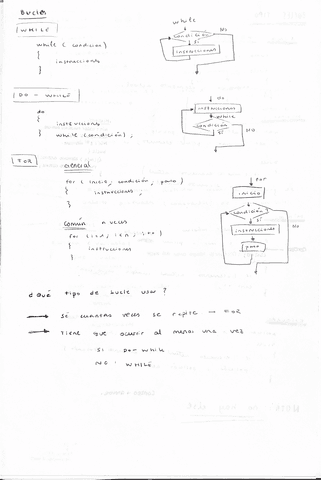 BUCLES
WHILE
while (condición)
{
instrucciones
}
while
condición
No
Sí
instrucciones
DO - WHILE
do
{
instrucciones
} while (condición);
instrucciones
while
condición
Sí
No
FOR
General
for (inicio, condición, paso)
{
instrucciones;
}
for
inicio
condición
No
Sí
instrucciones
paso
Común n veces
{
instrucciones
}
¿Qué tipo de bucle usar?
→ Sé cuántas veces se repite → FOR
→ Tiene que ocurrir al menos una vez
Sí : DO-WHILE
NO : WHILE